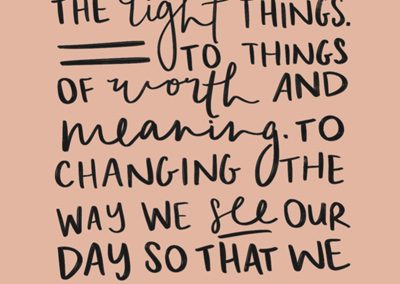 THE right THINGS.
TO THINGS
OF worth AND
meaning. TO
CHANGING THE
WAY WE see OUR
DAY SO THAT WE